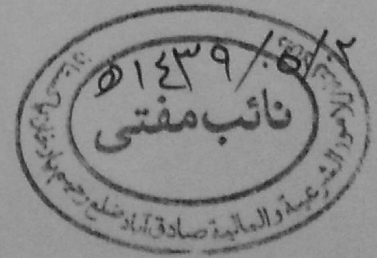 ۲/۵/۱٤۳۹ھ
نائب مفتی
الشرعية والمالية صادق آباد ضلع رحیم یار خان